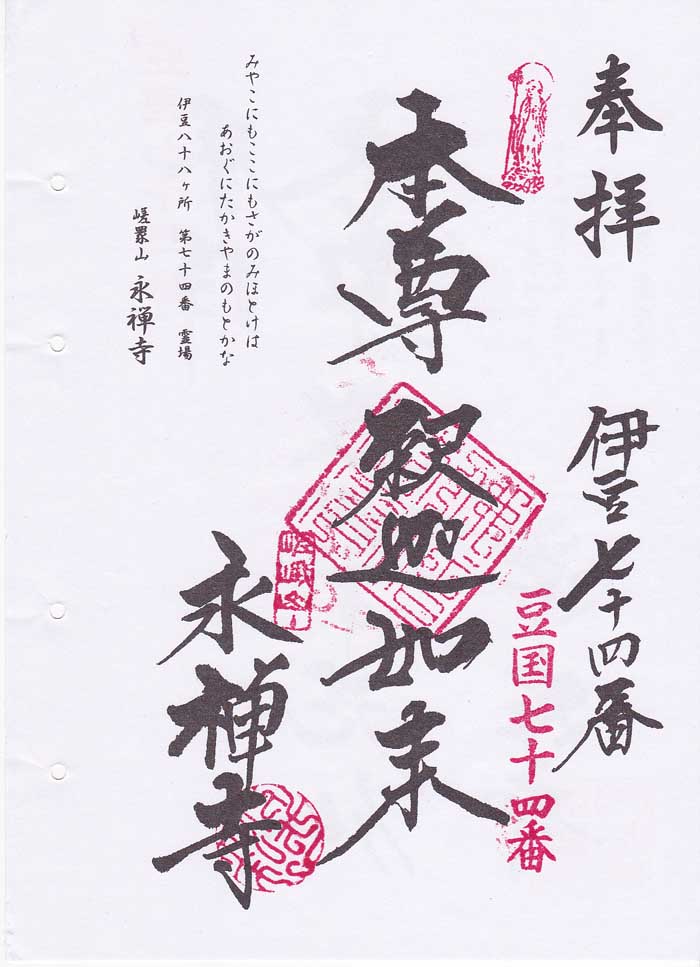 奉拝
伊豆七十四番
豆国七十四番
本尊 釈迦如来
永禅寺
みやこにもここにもさがのみほとけは
あおぐにたかきやまのもとかな
伊豆八十八ヶ所 第七十四番 霊場
永禅寺